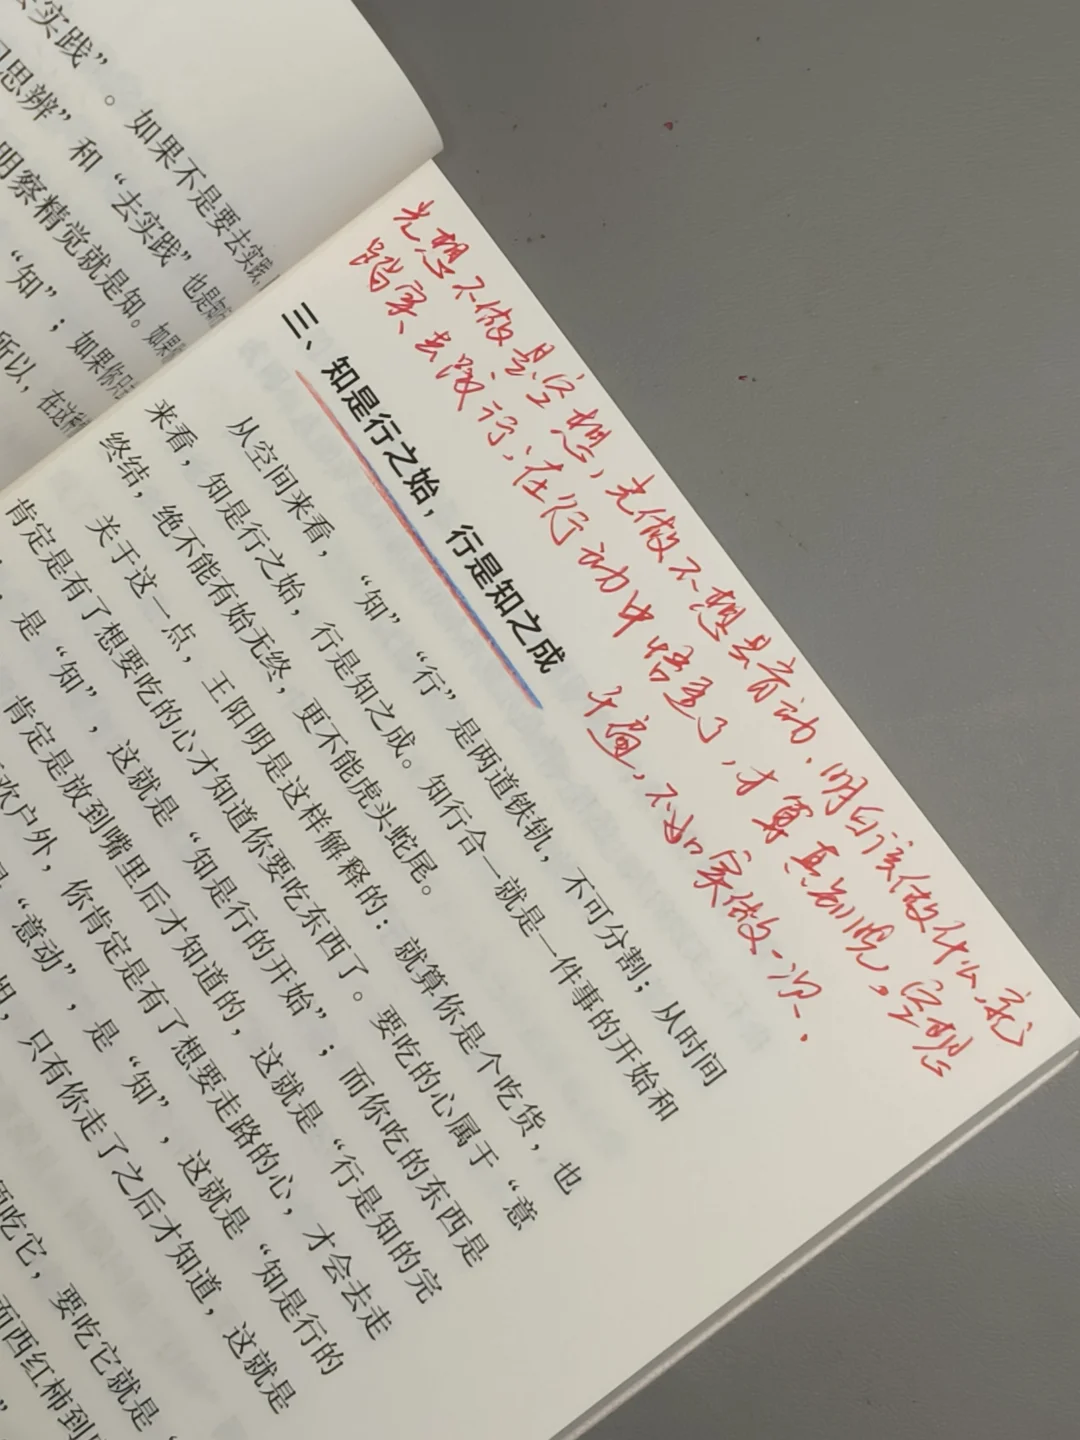 去实践”。如果不是要去实践，
思辨”和“去实践”也是知
明察精觉就是知。如果
“知”；如果你只
所以，在这种
光想不做是空想，光做不想是盲动。明白该做什么，就
踏实去履行，在行动中悟透了，才算真朗现。空想
千遍，不如实做一次。
三、知是行之始，行是知之成
从空间来看，“知”“行”是两道铁轨，不可分割；从时间
来看，知是行之始，行是知之成。知行合一就是一件事的开始和
终结，绝不能有始无终，更不能虎头蛇尾。
关于这一点，王阳明是这样解释的：就算你是个吃货，也
肯定是有了想要吃的心才知道你要吃东西了。要吃的心属于“意
，是“知”，这就是“知是行的开始”；而你吃的东西是
肯定是放到嘴里后才知道的，这就是“行是知的完
欢户外，你肯定是有了想要走路的心，才会去走
“意动”，是“知”，这就是“知是行的
，只有你走了之后才知道，这就是
要吃它，要吃它就是“
而西红柿到